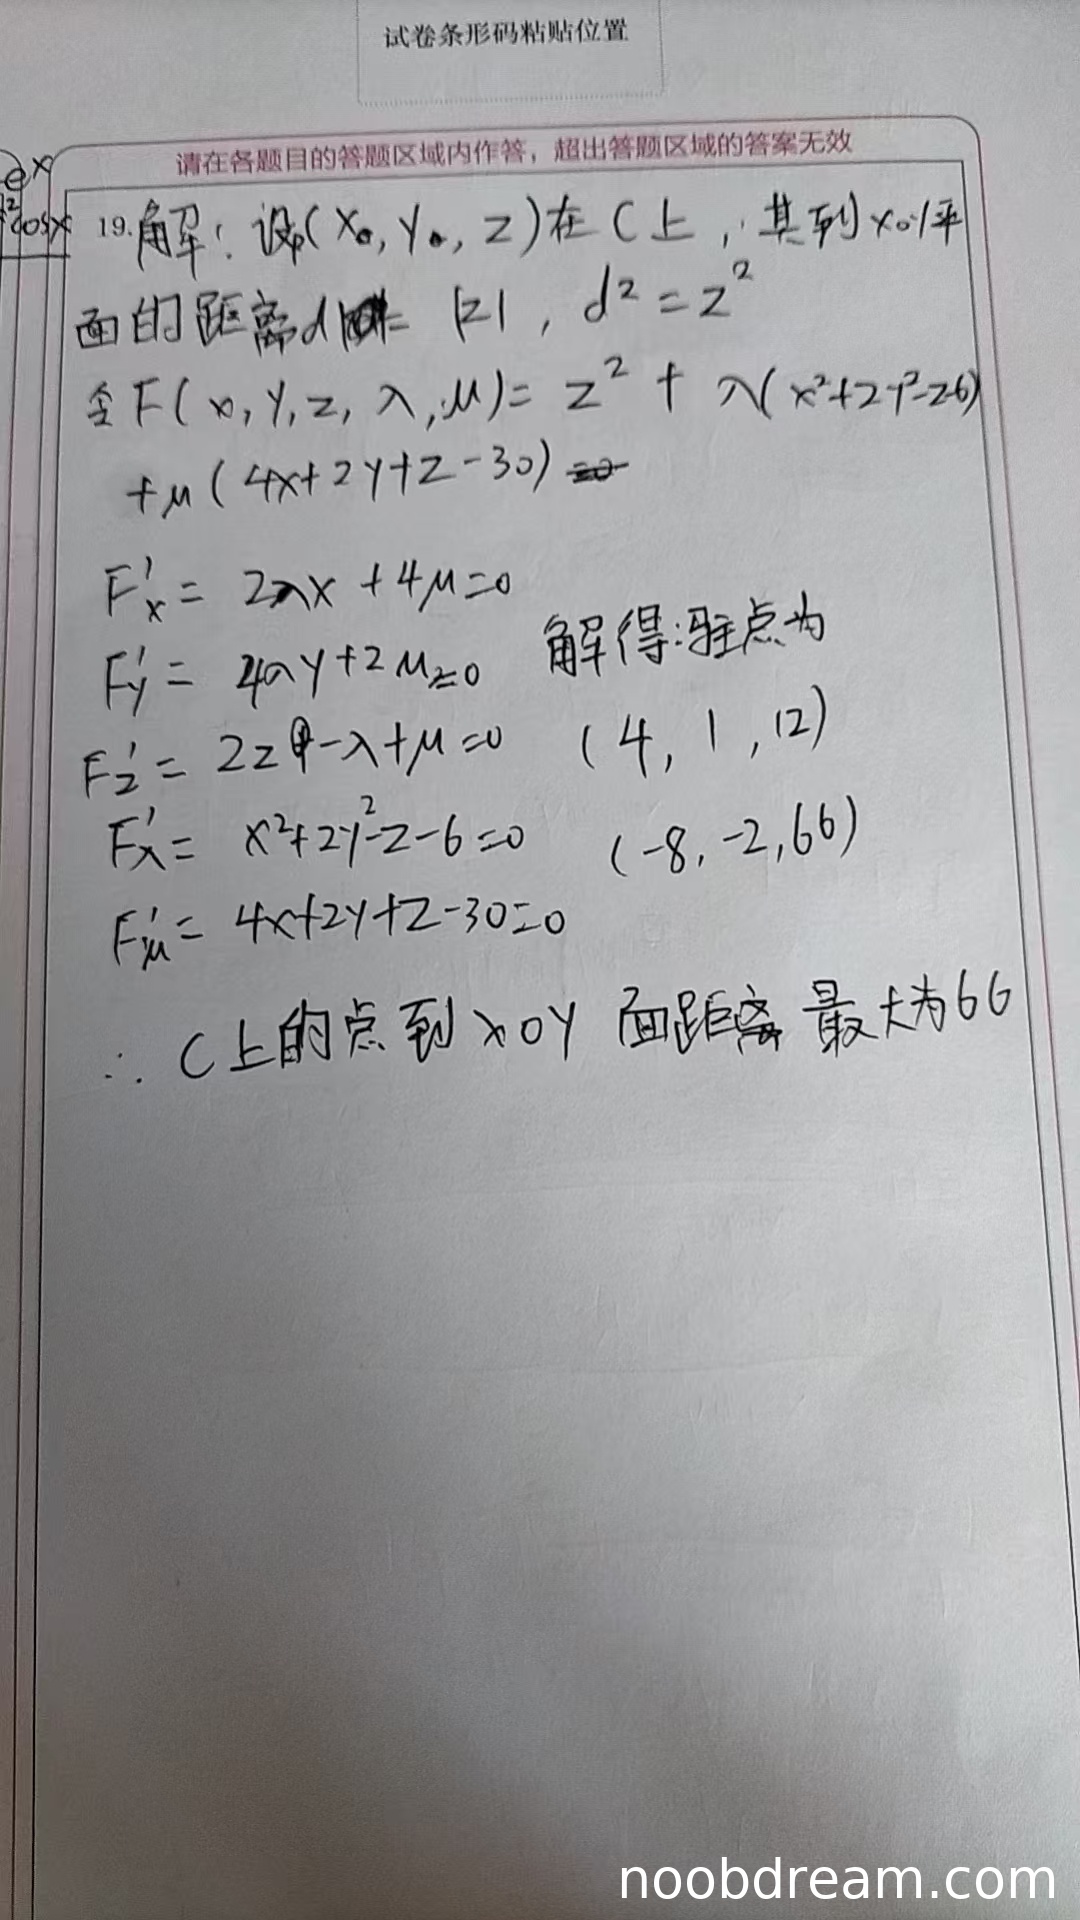 试卷条形码粘贴位置
请在各题目的答题区域内作答，超出答题区域的答案无效
ex
cosx
19.解：设(x₀, y₀, z)在C上，其到xoy平
面的距离d= |z|, d² = z²
令F(x, y, z, λ, μ)= z² + λ(x²+2y²-z-6)
+μ(4x+2y+z-30) =0
F'x = 2λx +4μ=0
解得:驻点为
F'y = 4λy+2μ=0
(4, 1, 12)
F'z = 2z-λ+μ=0
F'λ = x²+2y²-z-6=0
(-8, -2, 66)
F'μ = 4x+2y+z-30=0
∴ C上的点到xoy面距离最大为66
noobdream.com